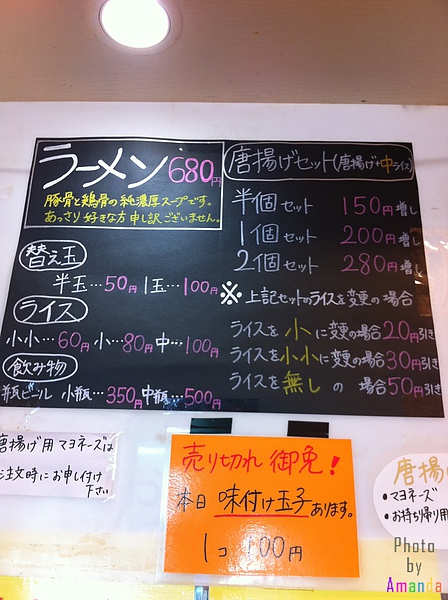 ラーメン 680円
豚骨と鶏骨の純濃厚スープです。
あっさり好きな方申し訳ございません。
替え玉
半玉…50円 1玉…100円
ライス
小小…60円 小…80円 中…100円
飲み物
瓶ビール 小瓶…350円 中瓶…500円
唐揚げセット(唐揚げ+中ライス)
半個セット 150円増し
1個セット 200円増し
2個セット 280円増し
※上記セットのライスを変更の場合
ライスを小に変更の場合20円引き
ライスを小小に変更の場合30円引き
ライスを無しの場合50円引き
唐揚げ用マヨネーズは
ご注文時にお申し付け
下さい
売り切れ御免!
本日味付け玉子あります。
1コ100円
唐揚
•マヨネーズ
•お持ち帰り用
Photo
by
Amanda